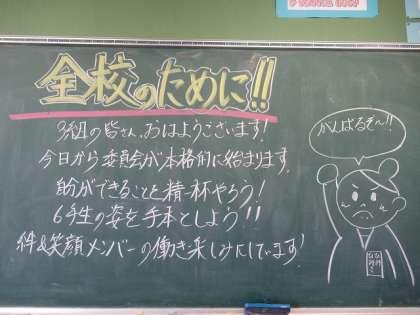 全校のために!!
3組の皆さん、おはようございます!
今日から委員会が本格的に始まります。
自分ができることを精一杯やろう!
6年生の姿を手本としよう!!
絆&笑顔メンバーの働き楽しみにしています!
がんばるぞ〜!!